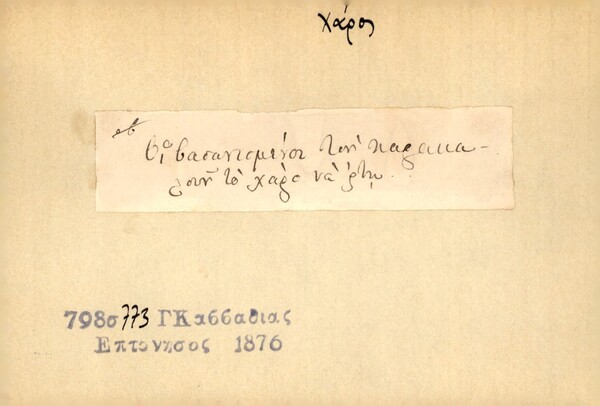 Χάρος
Οἱ βασανισμένοι τὸν παρακα-
λοῦν τὸ χάρο νἄρτῃ.
798σ 773 ΓΚασσαθιας
Επτονησος 1876